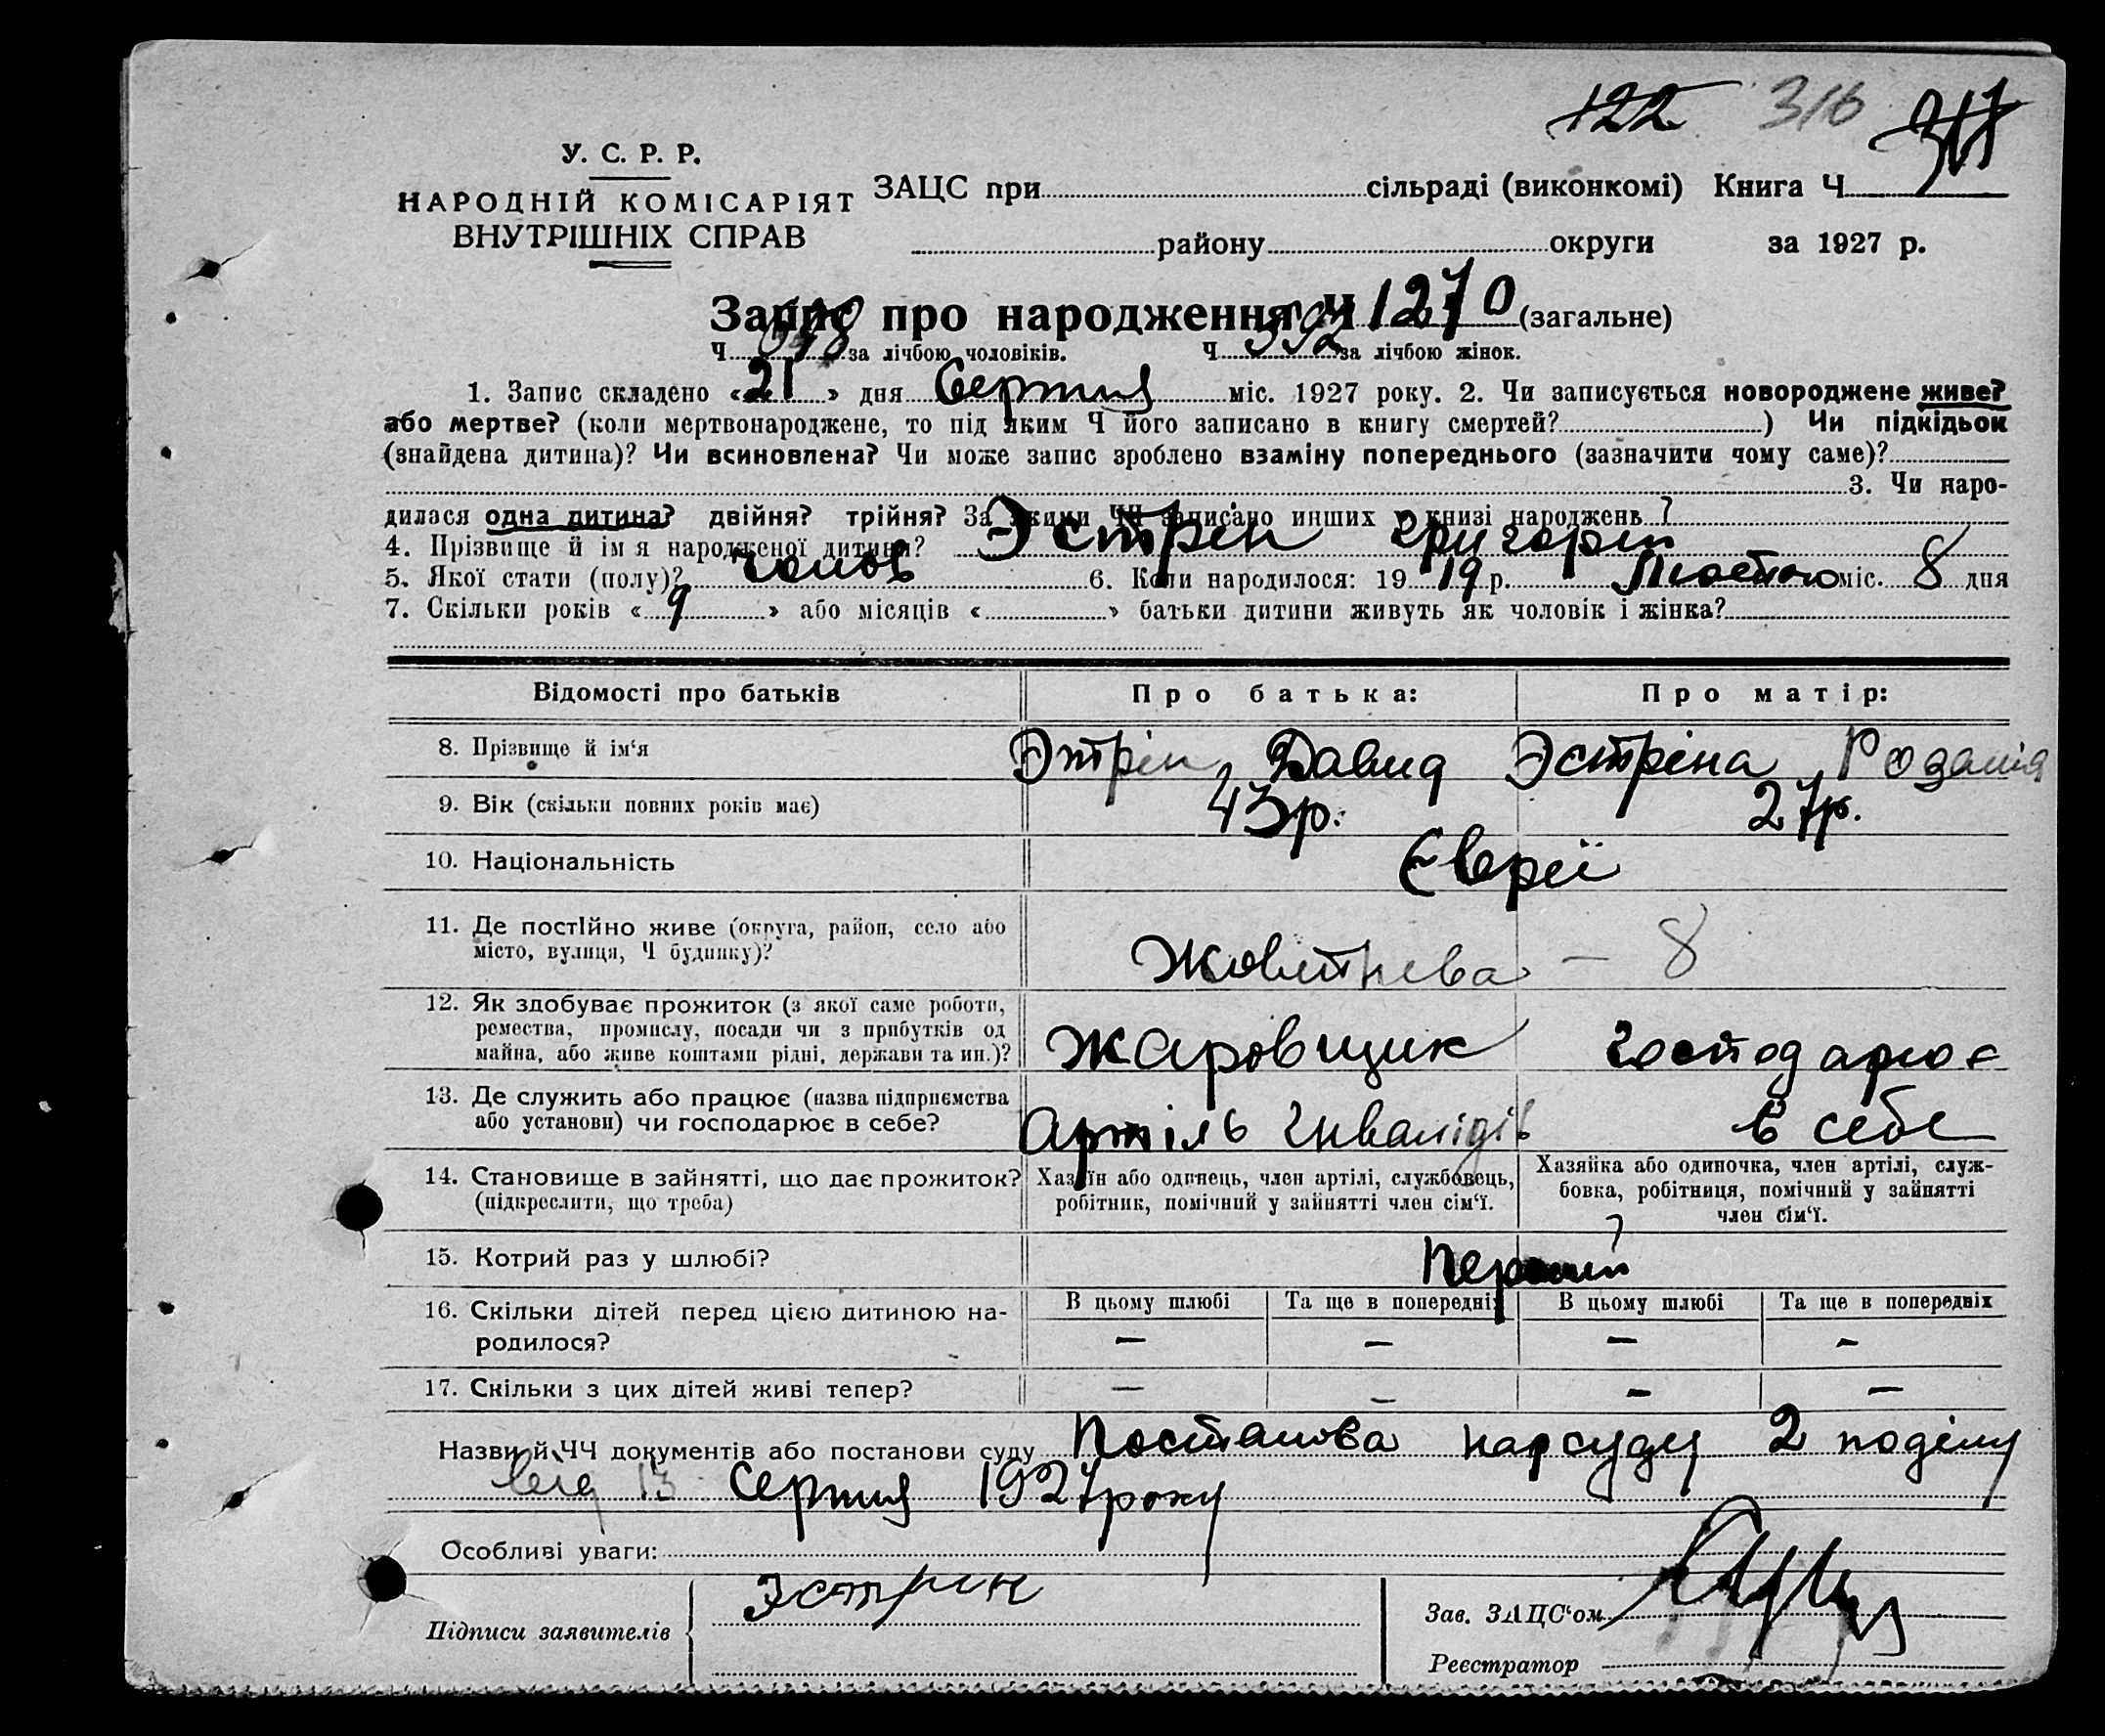 122 316 311
У. С. Р. Р.
НАРОДНІЙ КОМІСАРІЯТ
ВНУТРІШНІХ СПРАВ
ЗАЦС при сільраді (виконкомі) Книга Ч
району округи за 1927 р.
Запис про народження Ч 1270 (загальне)
Ч 678 за лічбою чоловіків. Ч 592 за лічбою жінок.
1. Запис складено «21» дня Серпня міс. 1927 року. 2. Чи записується новороджене живе?
або мертве? (коли мертвонароджене, то під яким Ч його записано в книгу смертей? ) Чи підкідьок
(знайдена дитина)? Чи всиновлена? Чи може запис зроблено взаміну попереднього (зазначити чому саме)?
3. Чи наро-
дилася одна дитина? двійня? трійня? За якими ЧЧ записано инших у книзі народжень?
4. Прізвище й ім я народженої дитини? Эстрін Григорій
5. Якої стати (полу)? чолов 6. Коли народилося: 19 19 р. Лютого міс. 8 дня
7. Скільки років « 9 » або місяців « » батьки дитини живуть як чоловік і жінка?
Відомості про батьків Про батька: Про матір:
8. Прізвище й ім‘я Эстрін Давид Эстріна Розалія
9. Вік (скільки повних років має) 43р. 27р.
10. Національність Євреї
11. Де постійно живе (округа, район, село або
місто, вулиця, Ч будинку)? Жовтнева – 8
12. Як здобуває прожиток (з якої саме роботи,
ремества, промислу, посади чи з прибутків од
майна, або живе коштами рідні, держави та ин.)? Жаровщик господарює
13. Де служить або працює (назва підприємства
або установи) чи господарює в себе? Артіль Інвалідів в себе
14. Становище в зайнятті, що дає прожиток?
(підкреслити, що треба)
Хазяїн або одинець, член артілі, службовець,
робітник, помічний у зайнятті член сім‘ї.
Хазяйка або одиночка, член артілі, служ-
бовка, робітниця, помічний у зайнятті
член сім‘ї.
15. Котрий раз у шлюбі? Перший
16. Скільки дітей перед цією дитиною на-
родилося?
В цьому шлюбі Та ще в попередніх В цьому шлюбі Та ще в попередніх
– – – –
17. Скільки з цих дітей живі тепер? – – – –
Назви й ЧЧ документів або постанови суду Постанова нарсуду 2 поділу
від 13 Серпня 1927 року
Особливі уваги:
Підписи заявителів Эстрин
Зав. ЗАЦС‘ом
Реєстратор